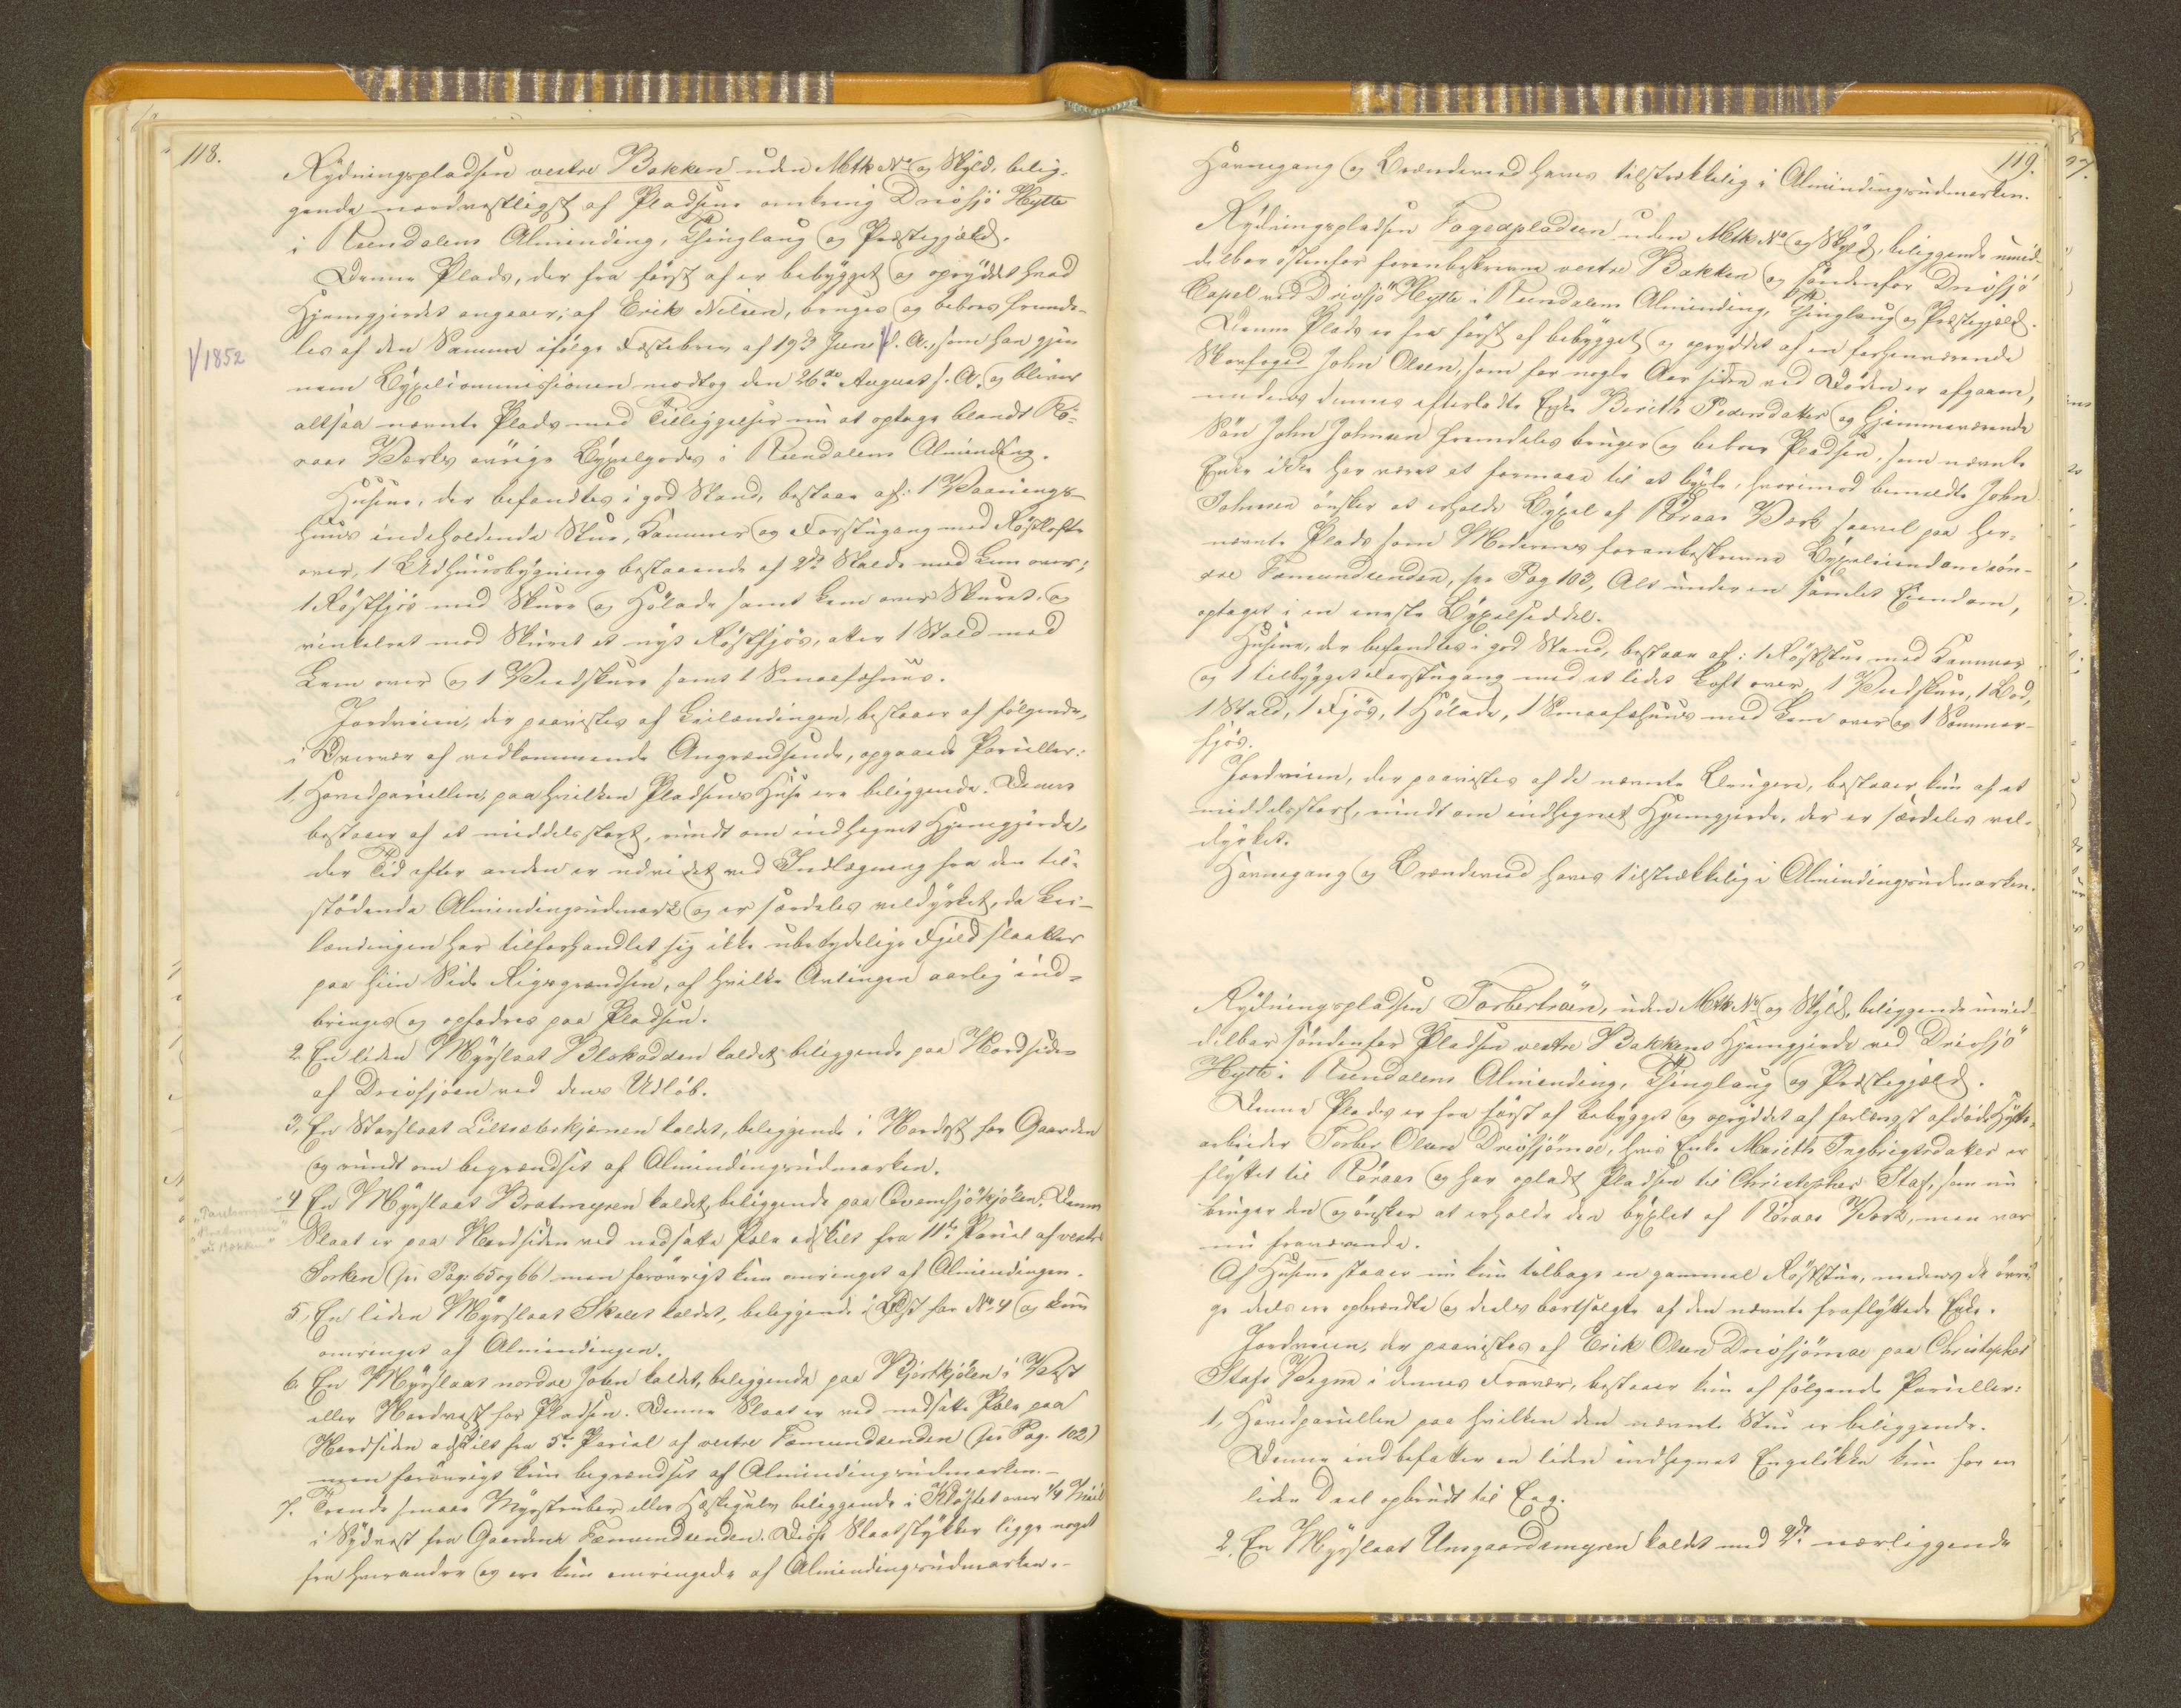 118.
Rydningspladsen vestre Bakken uden Mtk No og Skyld, belig-
gende nordvestligst af Pladsene omkring Drivsjö Hytte
i Rendalens Alminding, Thinglaug og Præstegjæld.
Denne Plads, der fra först af er bebygget og opryddet hvad
Hjemgjerdet angaaer, af Erik Nilsen, bruges og beboes fremde-
les af den Samme ifölge Fæstebrev af 19de Juni f. A., som han gjen
√1852
nem Byxelcommissionen modtog den 26de August s. A. og bliver
altsaa nævnte Plads med Tilliggelser nu at optage blandt Rö-
raas Værks övrige Byxelgods i Rendalens Alminding.
Husene, der befandtes i god Stand, bestaar af: 1 Vaanings-
huus indeholdende Stue, Kammer og Forstugang med Röstlofte
over, 1 Udhuusbygning bestaaende af 2de Stalde med Lem over;
1 Röstfjös med Skure og Hölade samt Lem over Skuret, og
vinkelret mod Skuret et nyt Röstfjös, atter 1 Stald med
Lem over og 1 Vedskure samt 1 Smaafæhuus.
Jordveien, der paavistes af Leilændingen, bestaaer af fölgende,
i Overvær af vedkommende Angrændsende, opgaaede Parceller:
1, Hovedparcellen, paa hvilken Pladsens Huse ere beliggende. Denne
bestaaer af et middelsstort, rundt om indhegnet Hjemgjerde,
der Tid efter anden er udvidet ved Indlægning fra den til-
stödende Almindingsudmark og er særdeles veldyrket, da Lei-
lændingen har tilforhandlet sig ikke ubetydelige Fjeldslaatter
paa hiin Side Rigsgrændsen, af hvilke Avlingen aarlig ind-
bringes og opfodres paa Pladsen.
2 En liden Myrslaat Blokodden kaldet beliggende paa Nordsiden
af Drivsjöen ved dens Udlöb.
3, En Storslaat Lilsæterkjærnen kaldet, beliggende i Nordost for Gaarden
og rundt om begrændset af Almindingsudmarken.
4 En Myrslaat Bratmyren kaldet, beliggende paa Ovensjökjölen. Denne
Slaat er paa Nordsiden ved nedsatte Pæle adskilt fra 11te Parcel af vestre
Sorken (se Pag: 65 og 66) men forövrigt kun omringet af Almindingen.
5, En liden Myrslaat Skalet kaldet, beliggende i Öst for No 4 og kun
omringet af Almindingen.
6 En Myrslaat nordre Joten kaldet, beliggende paa Kjertkjölen i Vest
eller Nordvest for Pladsen. Denne Slaat er ved nedsatte Pæle paa
Nordsiden adskilt fra 5te Parcel af vestre Fæmundsenden (se Pag. 102)
men forövrigt kun begrændset af Almindingsudmarken.–
7. Trende smaae Myrstruber eller Hesteguler beliggende i Klöftet over 1/4 Miil
i Sydvest fra Gaardene Fæmundsenden. Disse Slaatstykker ligge noget
fra hverandre og ere kun omringede af Almindingsudmarken.–
119.
Havnegang og Brændeved haves tilstrækkelig i Almindingsudmarken.
Rydningspladsen Fogedpladsen uden Mtk No og Skyld, beliggende umid-
delbar östenfor foranbeskrevne vestre Bakken og söndenfor Drivsjö
Capel ved Drivsjö Hytte i Rendalens Alminding, Thinglaug og Præstegjæld.
Denne Plads er fra först af bebygget og opryddet af en forhenværende
Skovfoged John Olsen, som for nogle Aar siden ved Döden er afgaaen,
medens dennes efterladte Enke Berith Pedersdatter og hjemmeværende
Sön John Johnsen fremdeles bruger og beboer Pladsen, som nævnte
Enke ikke har været at formaae til at byxle, hvorimod bemeldte John
Johnsen önsker at erholde Byxel af Röraas Værk saavel paa her-
nævnte Plads som Moderens foranbeskrevne Byxeleiendom sön-
dre Fæmundsenden, see Pag 103, Alt under en samlet Eiendom,
optaget i en eneste Byxelseddel.
Husene, der befandtes i god Stand, bestaar af: 1 Röststue med Kammer
og 1 tilbygget Forstugang med et lidet Loft over, 1 Vedskure, 1 Bod,
1 Stald, 1 Fjös, 1 Hölade, 1 Smaafæhuus med Lem over og 1 Sommer-
fjös.
Jordveien, der paavistes af de nævnte Brugere, bestaaer kun af et
middelsstort, rundt om indhegnet Hjemgjerde, der er særdeles vel-
dyrket.
Havnegang og Brændeved haves tilstrækkelig i Almindingsudmarken.
Rydningspladsen Torberhröen, uden Mtk No og Skyld, beliggende umid-
delbar söndenfor Pladsen vestre Bakkens Hjemgjerde ved Drivsjö
Hytte i Rendalens Alminding, Thinglaug og Præstegjæld.
Denne Plads er fra först af bebygget og opryddet af forlængst afdöde Hytte-
arbeider Torber Olsen Drivsjömoe, hvis Enke Marith Ingbrigtsdatter er
flyttet til Röraas og har opladt Pladsen til Christopher Staf, som nu
bruger den og önsker at erholde den byxlet af Röraas Værk, men var
nu fraværende.
Af Husene staaer nu kun tilbage en gammel Röststue, medens de övri-
ge deels ere opbrændte og deels bortsolgte af den nævnte fraflyttede Enke.
Jordveien, der paavistes af Erik Olsen Drivsjömoe paa Christopher
Stafs Vegne i dennes Fravær, bestaaer kun af fölgende Parceller:
1, Hovedparcellen paa hvilken den nævnte Stue er beliggende.
Denne indbefatter en liden indhegnet Engelökke kun for en
liden Deel opbrudt til Eng.
2, En Myrslaat Unsgaardsmyren kaldet med 2de nærliggende